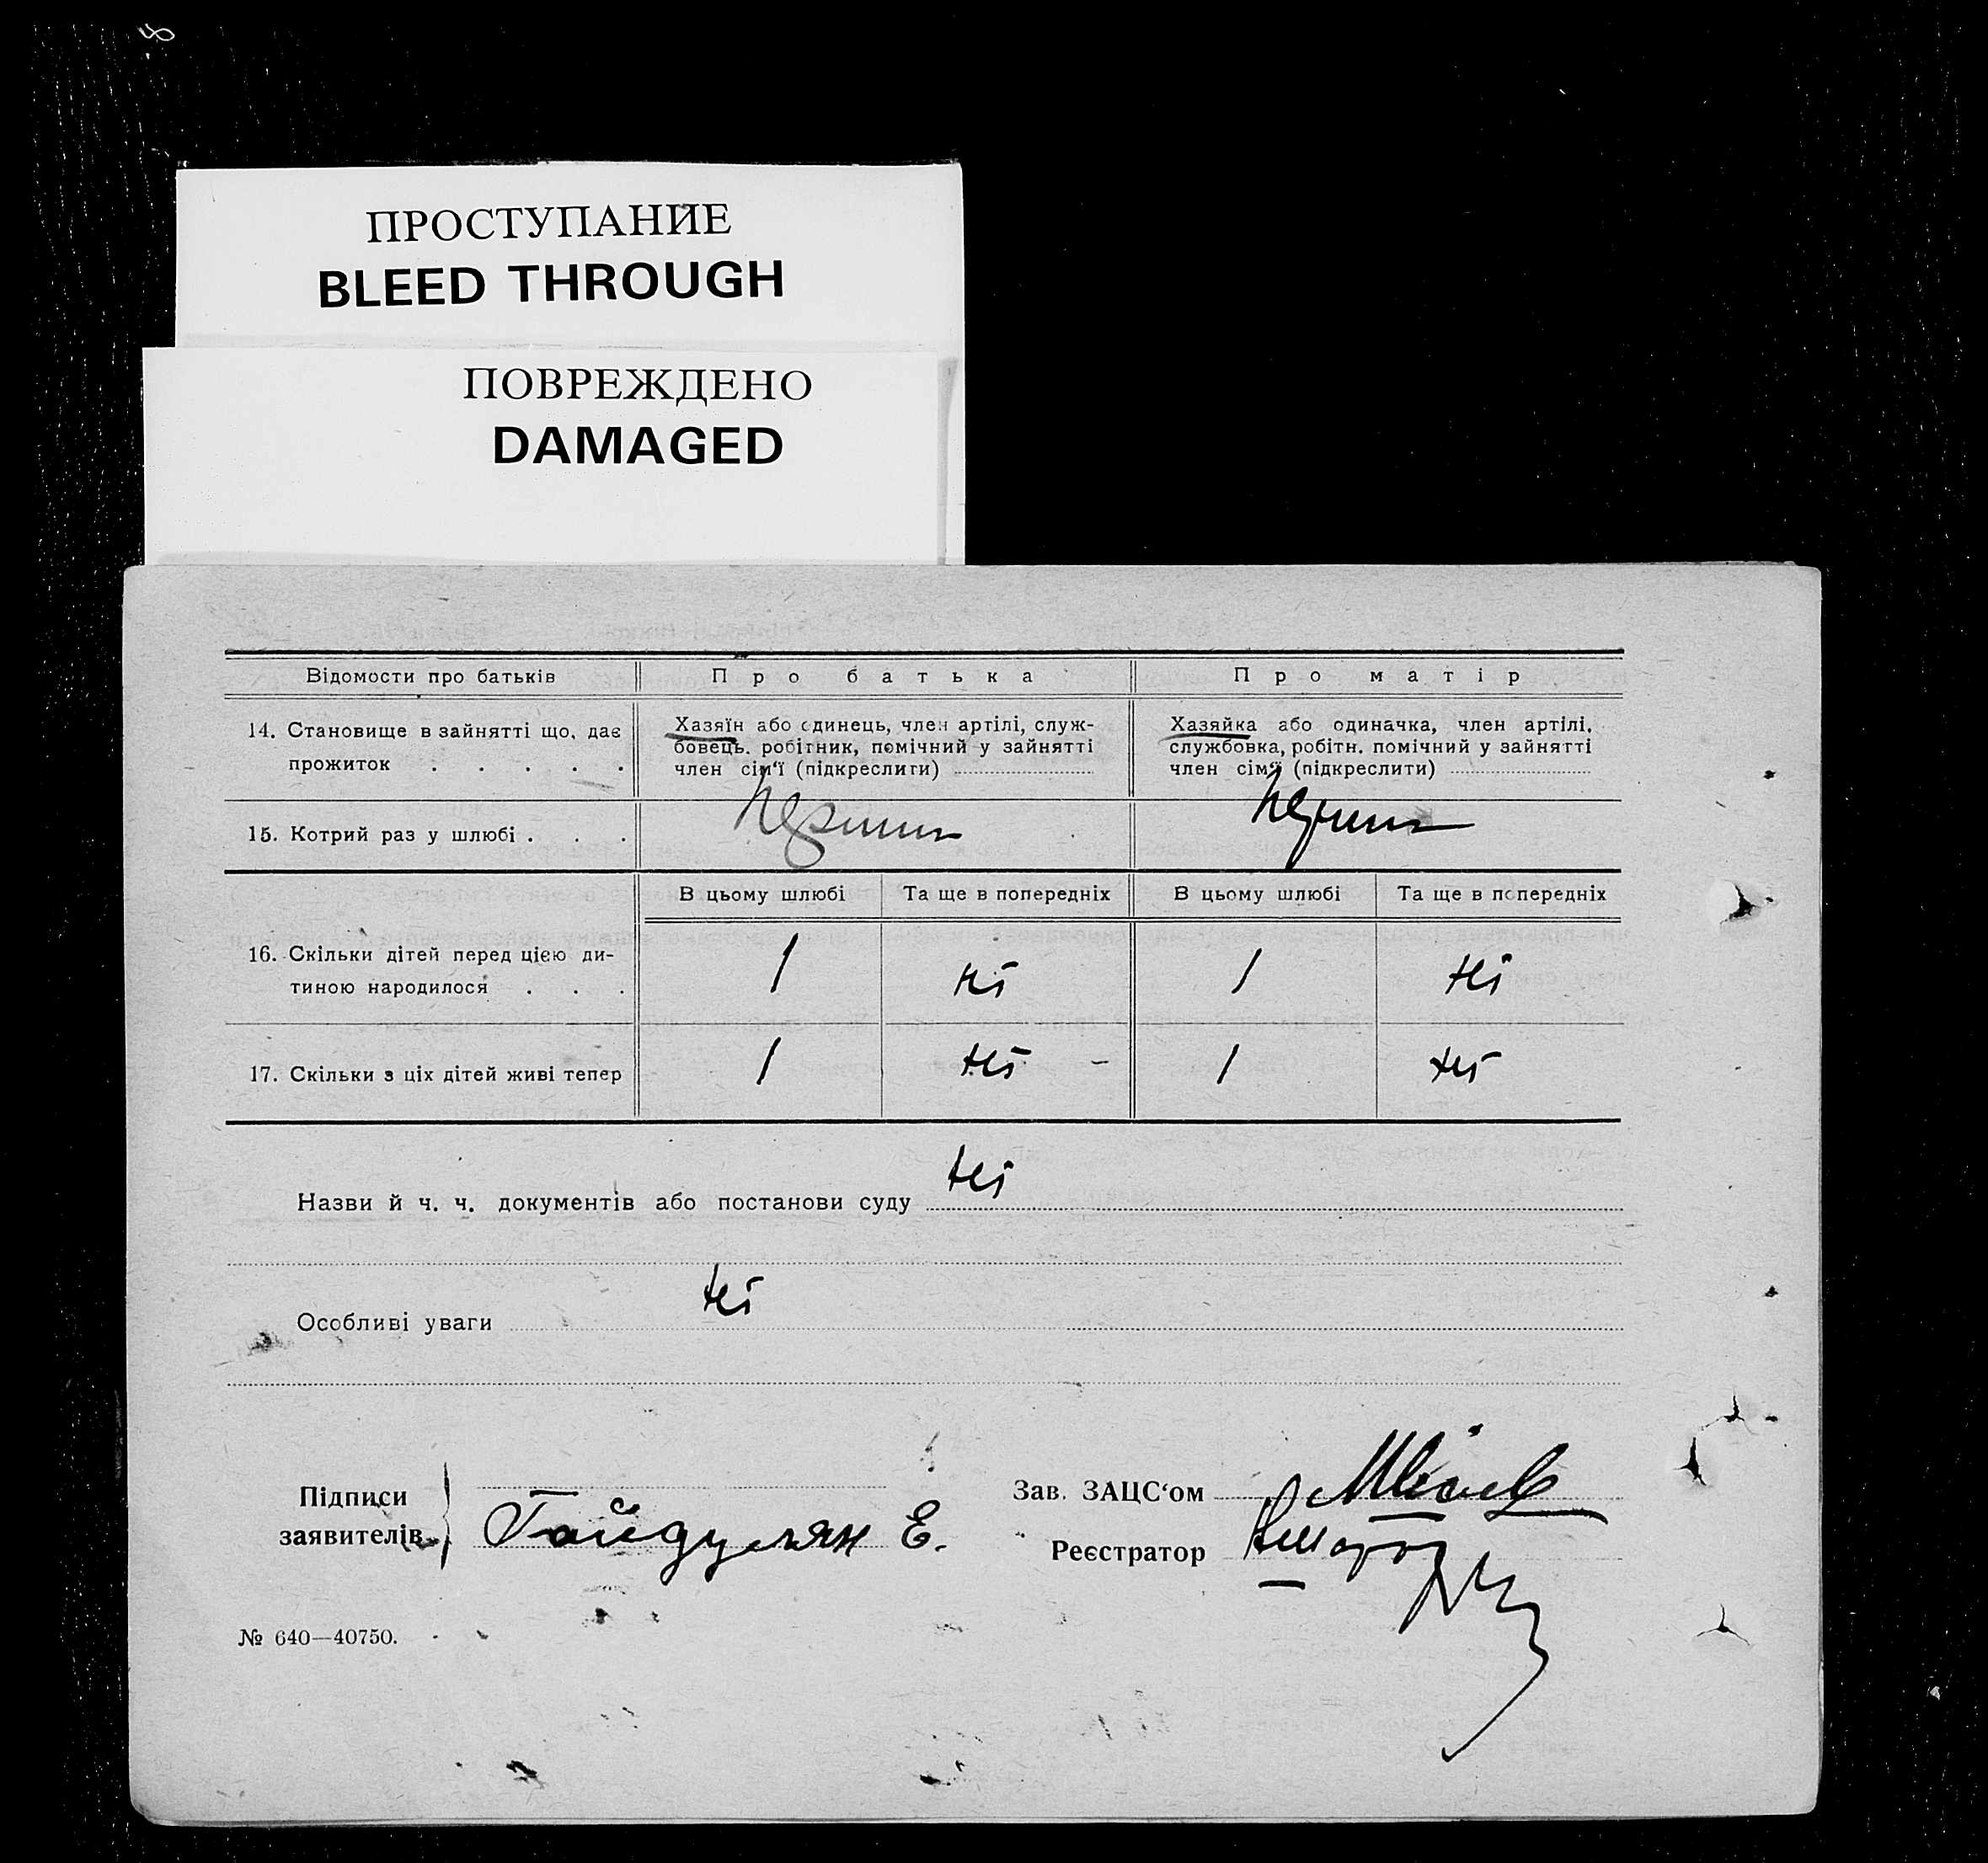 8
ПРОСТУПАНИЕ
BLEED THROUGH
ПОВРЕЖДЕНО
DAMAGED
Відомости про батьків Про батька Про матір
14. Становище в зайнятті що, дає прожиток . . . . .
Хазяїн або одинець, член артілі, служ-
бовець, робітник, помічний у зайнятті
член сім‘ї (підкреслити)
Хазяйка або одиначка, член артілі,
службовка, робітн. помічний у зайнятті
член сім‘ї (підкреслити)
15. Котрий раз у шлюбі . . .
В цьому шлюбі Та ще в попередніх В цьому шлюбі Та ще в попередніх
16. Скільки дітей перед цією ди-
тиною народилося . . .
1 ні 1 ні
17. Скільки з ціх дітей живі тепер 1 ні - 1 ні
Назви й ч. ч. документів або постанови суду ні
Особливі уваги ні
Підписи
заявителів
Гайдулян Е.
Зав. ЗАЦС‘ом
Реєстратор
№ 640—40750.